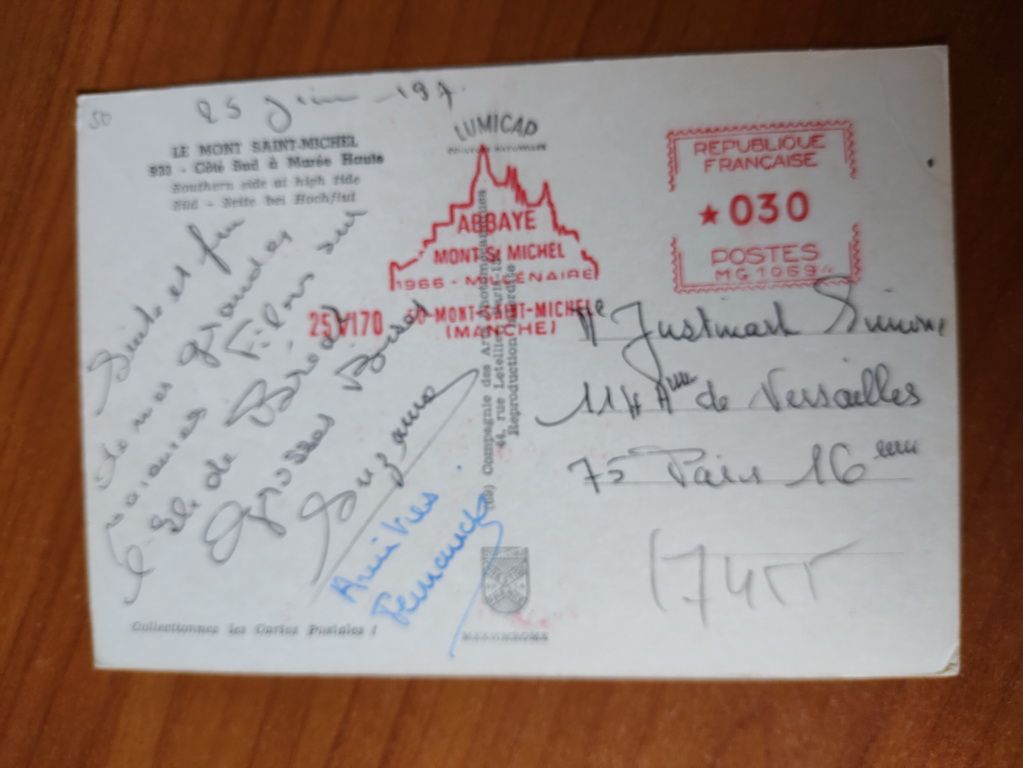 50
25 Juin 197
LE MONT SAINT-MICHEL
- Côté Sud à Marée Haute
Southern side at high tide
Süd - Seite bei Hochflut
Suite et fin
de mes grandes
Filons sur
de Bréat
Grosses Bises
Suzanne
Amitiés
Collectionnez les Cartes Postales !
LUMICAP
ABBAYE
MONT St MICHEL
1966 - MILLENAIRE
25 VI 70 50-MONT-SAINT-MICHEL
(MANCHE)
Compagnie des Arts Photomécaniques
44, rue Letellier, Paris-15e
Reproduction interdite
REPUBLIQUE
FRANÇAISE
★ 030
POSTES
MG1069
Mlle Justmart Simone
114 Ave de Versailles
75 Paris 16eme
17455